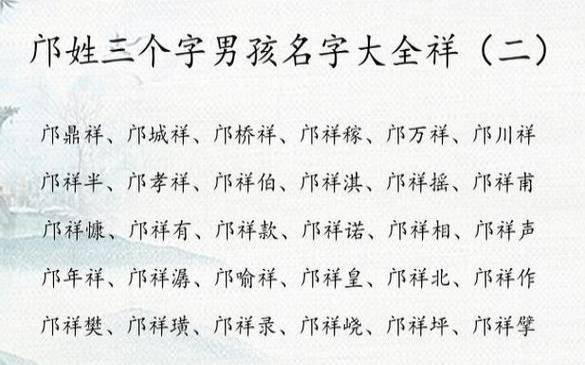 邝姓三个字男孩名字大全祥（二）
邝鼎祥、邝城祥、邝桥祥、邝祥稼、邝万祥、邝川祥
邝祥半、邝孝祥、邝祥伯、邝祥淇、邝祥摇、邝祥甫
邝祥慷、邝祥有、邝祥款、邝祥诺、邝祥相、邝祥声
邝年祥、邝祥潺、邝喻祥、邝祥皇、邝祥北、邝祥作
邝祥樊、邝祥璜、邝祥录、邝祥峣、邝祥坪、邝祥擘